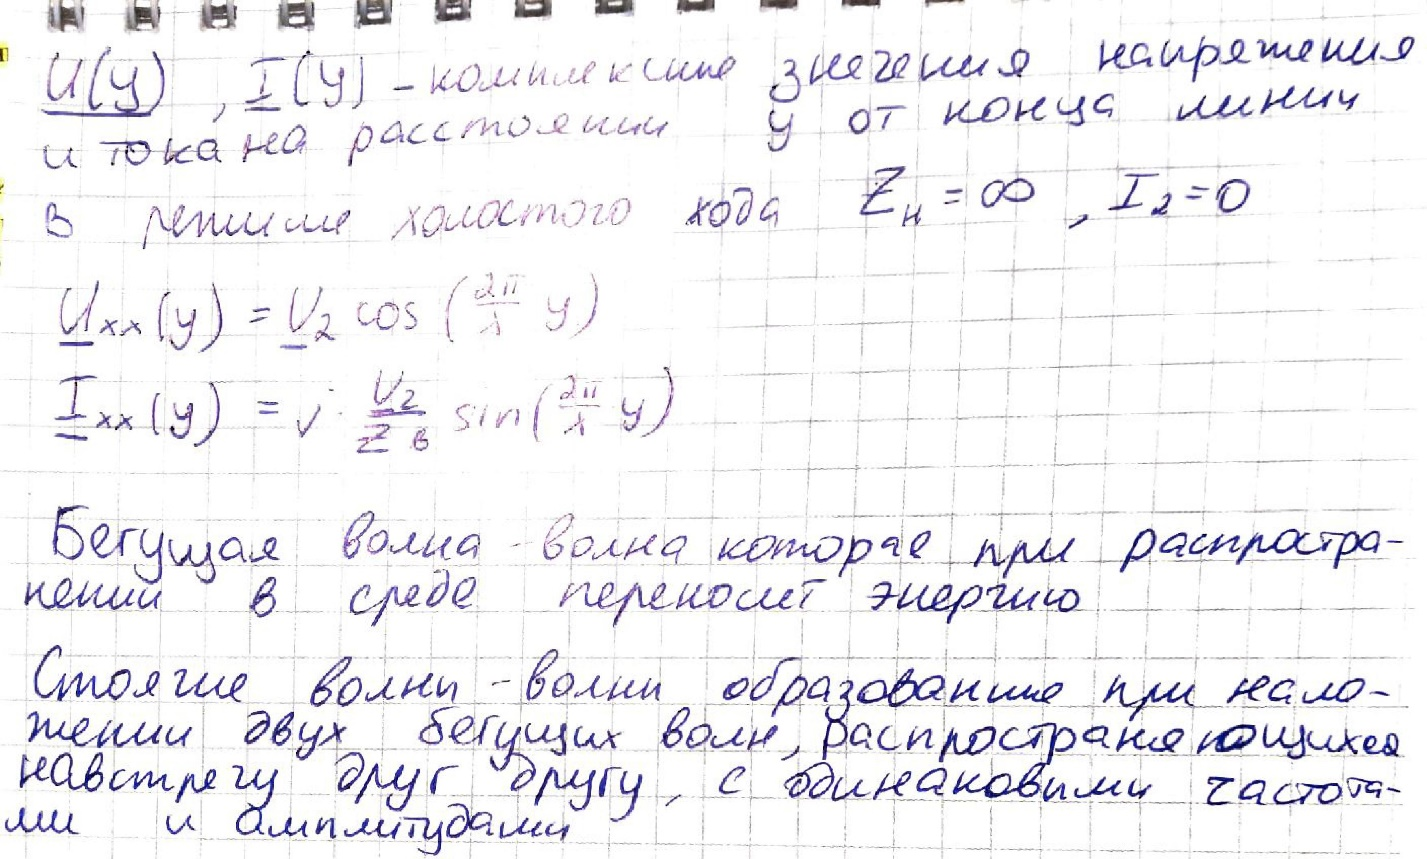 U(y), I(y) – комплексные значения напряжения
и тока на расстоянии y от конца линии
в режиме холостого хода Zн = ∞, I₂ = 0
Uхх(y) = U₂ cos (2π/λ y)
Iхх(y) = j · U₂/Zв sin (2π/λ y)
Бегущая волна - волна которая при распростра-
нении в среде переносит энергию
Стоячие волны - волны образованные при нало-
жении двух бегущих волн, распространяющихся
навстречу друг другу, с одинаковыми частота-
ми и амплитудами